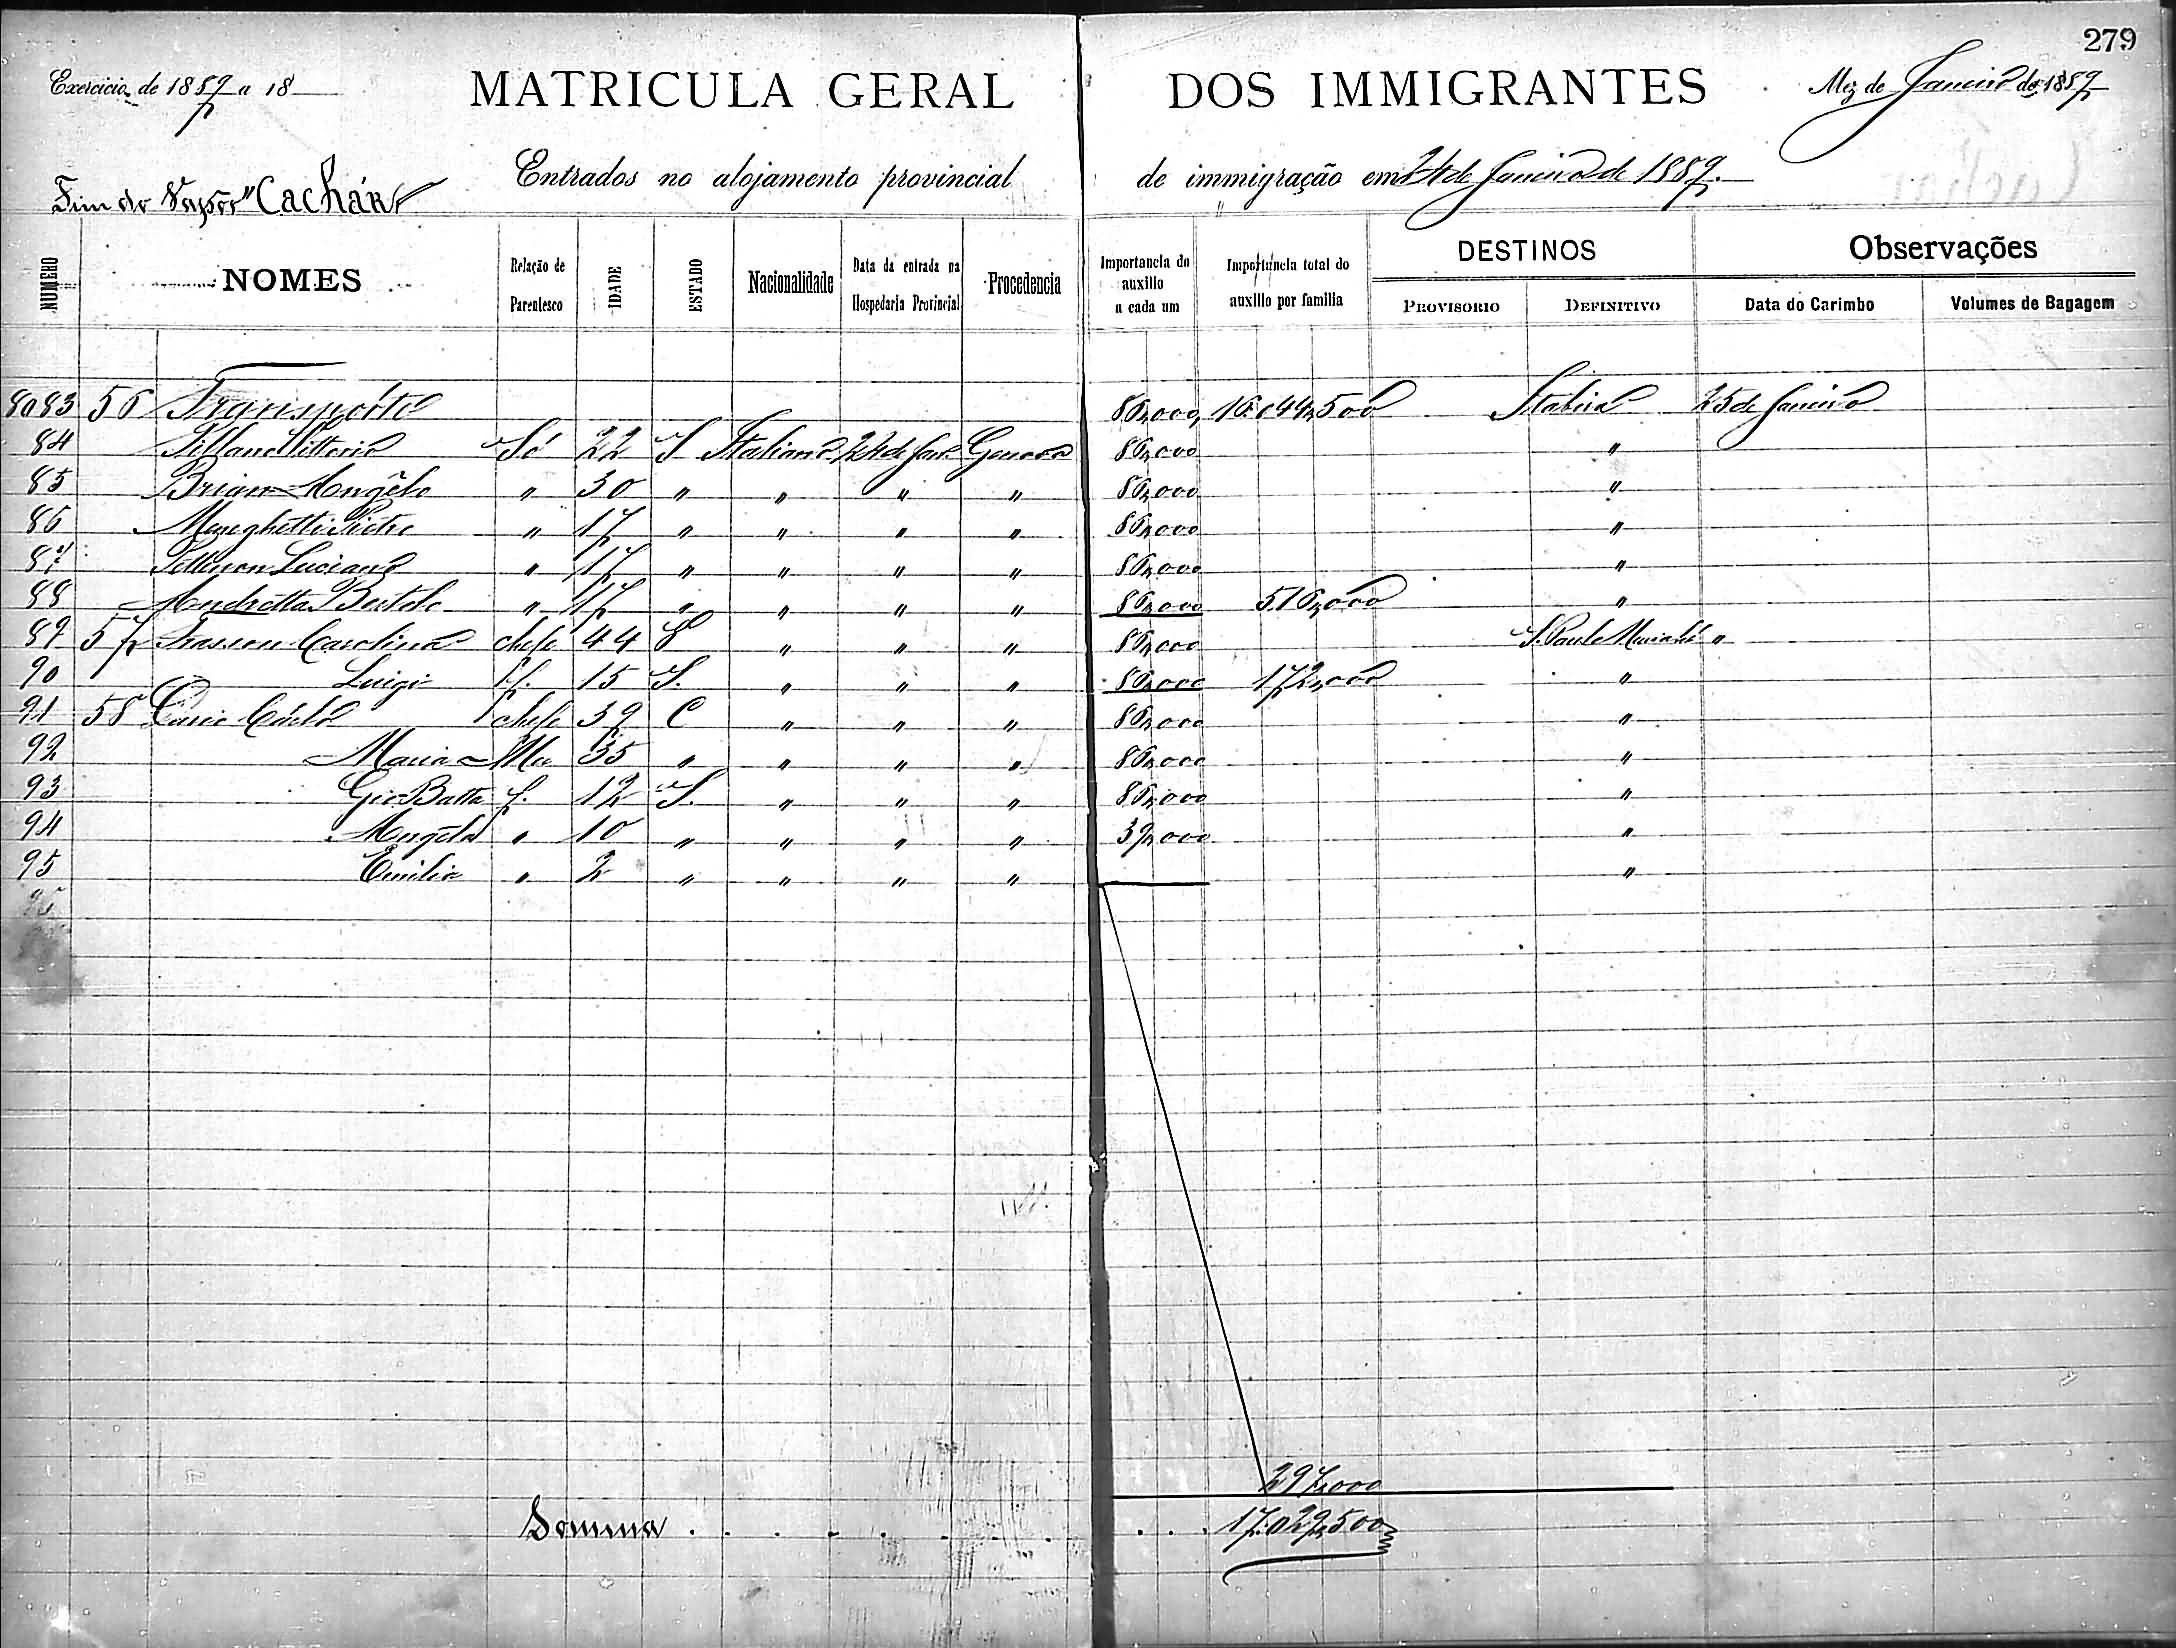 279
Exercicio de 1889 a 18
MATRICULA GERAL DOS IMMIGRANTES
Mez de Janeiro de 1889
Fim do Vapor "Cachár"
Entrados no alojamento provincial de immigração em 24 de Janeiro de 1889.
NUMERO NOMES Relação de Parentesco IDADE ESTADO Nacionalidade Data da entrada na Hospedaria Provincial Procedencia Importancia do auxilio a cada um Importancia total do auxilio por familia DESTINOS PROVISORIO DEFINITIVO Observações Data do Carimbo Volumes de Bagagem
8083 56 Transporte 86,000 16:044,500 Itabira 25 de Janeiro
84 Vittorio Só 22 S Italiano 24 de Jan. Genova 86,000 "
85 Brian Angelo " 30 " " " " 86,000 "
86 Meneghetti Pietro " 17 " " " " 86,000 "
87 Luciano " 17 " " " " 86,000 "
88 Andretta Bortolo " 17 " " " " 86,000 516,000 "
89 57 Carolina chefe 44 " " " 86,000 S. Paulo Muriahé "
90 Luigi f. 15 S. " " " 86,000 172,000 "
91 58 chefe 39 C " " " 86,000 "
92 Maria Mer 35 " " " " 86,000 "
93 Gio Batta f. 12 S. " " " 86,000 "
94 Angelo " 10 " " " " 39,000 "
95 Emilia " 2 " " " " "
297,000
Somma . . . . . . . . . 17:029,500